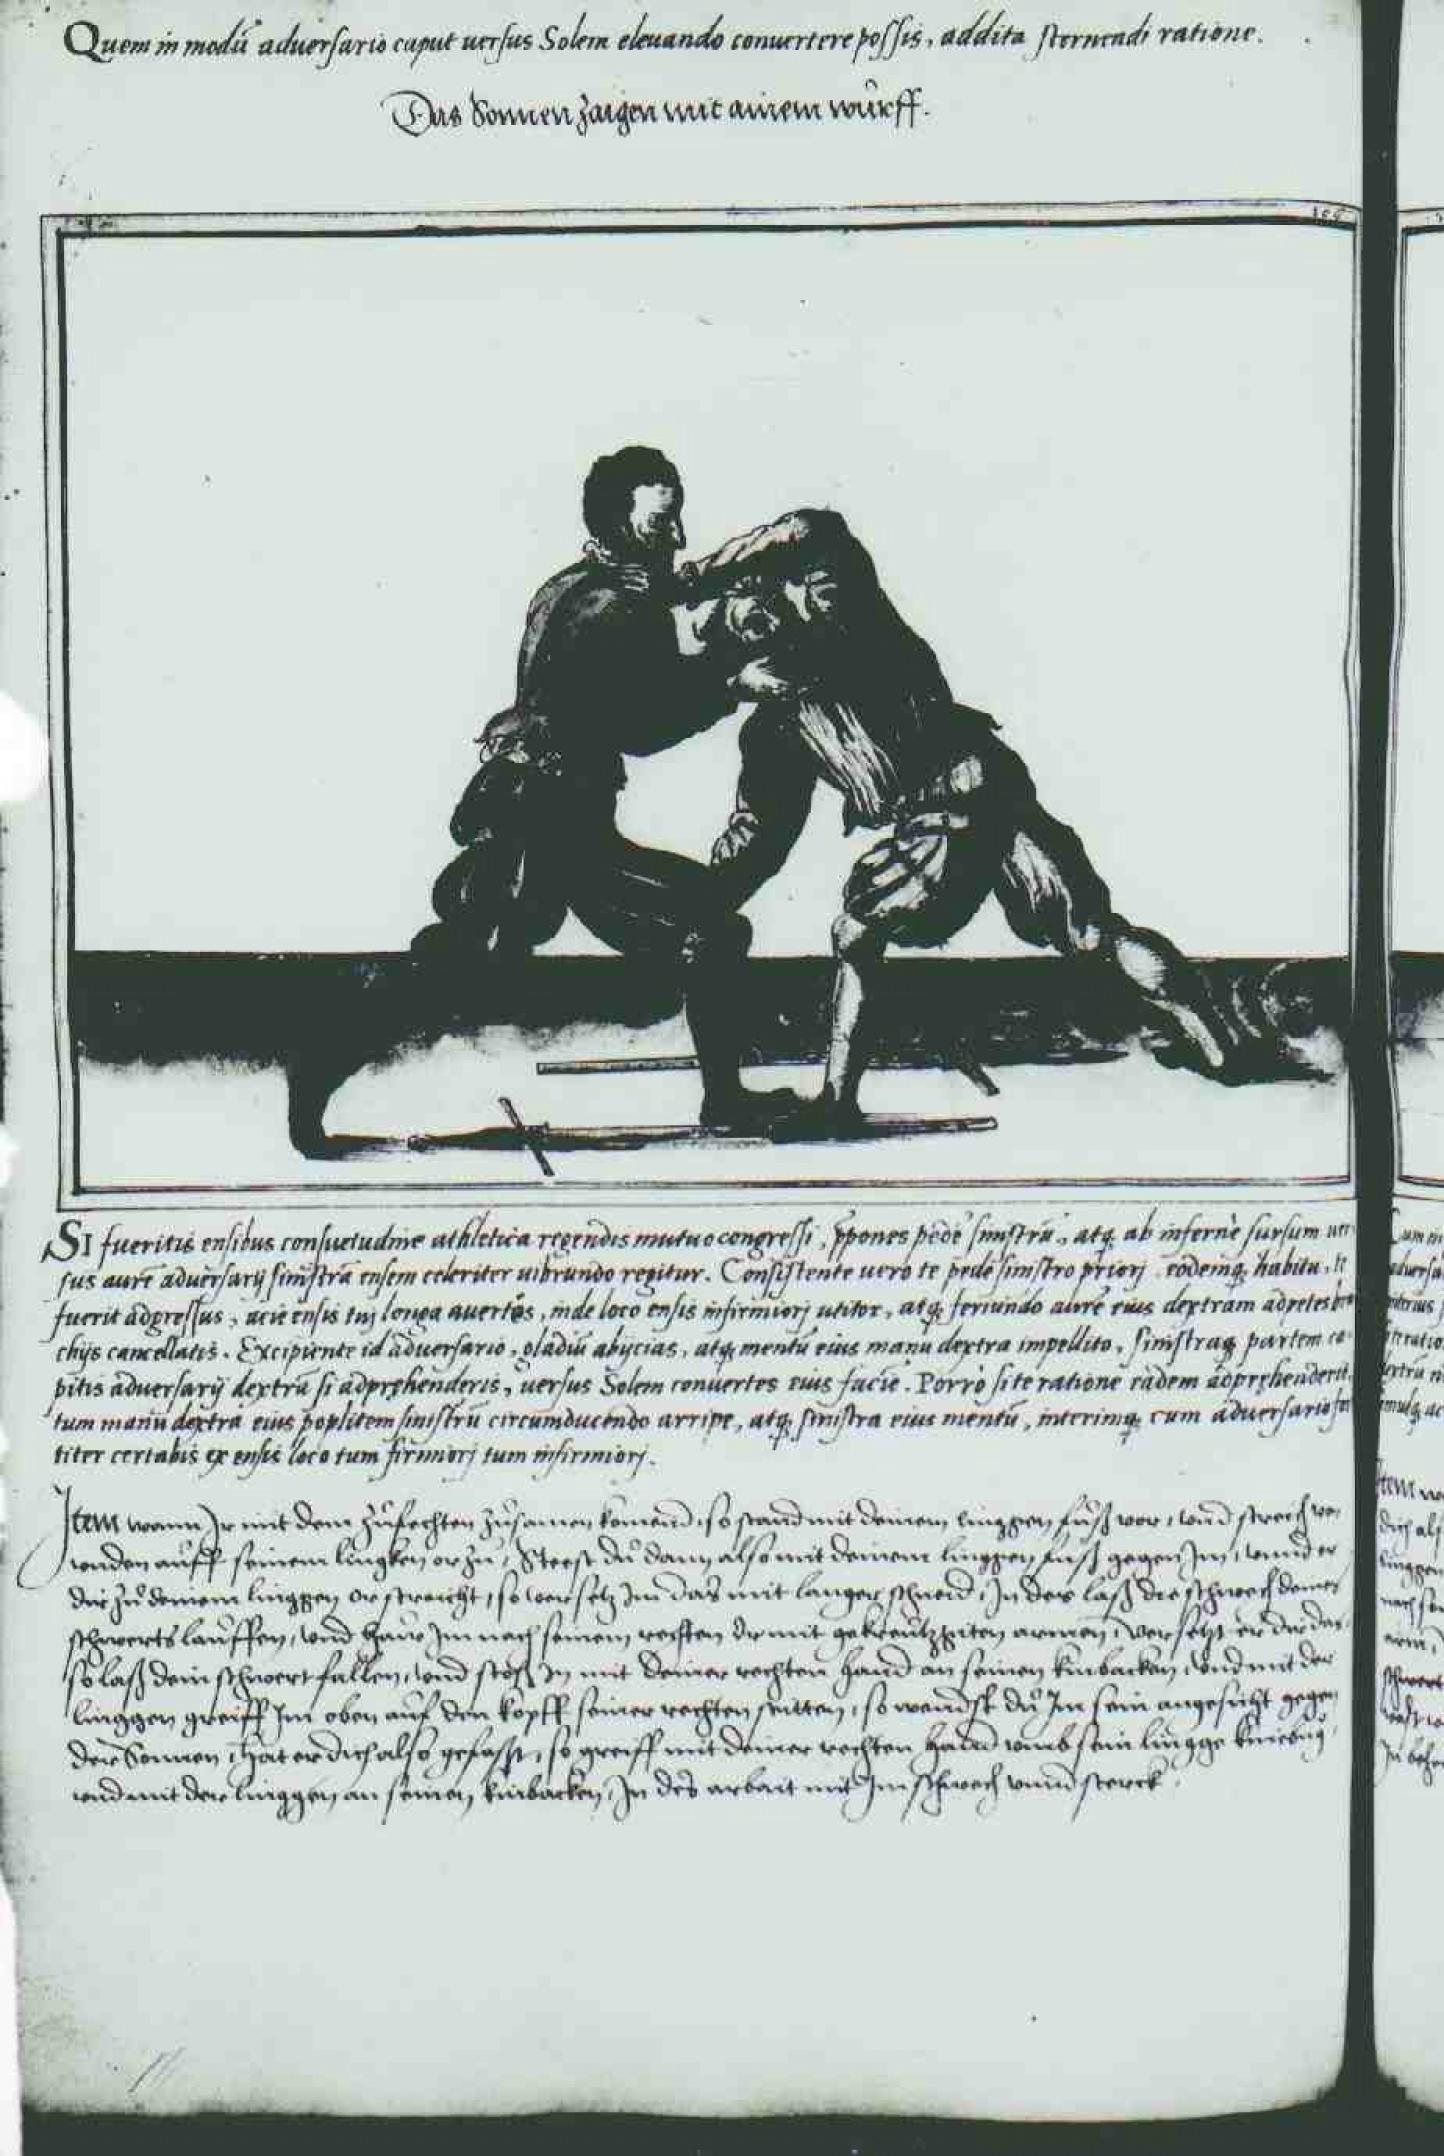 Quem in modū aduersario caput uersus Solem eleuando conuertere possis, addita sternendi ratione.
Das Sonnen zaigen mit ainem wůrff.
SI fueritis ensibus consuetudine athletica regendis mutuo congressi, ꝓpones pedē sinistrū, atq; ab infernè sursum uer
sus aurē aduersarij sinistrā ensem celeriter uibrando regitur. Consistente uero te pede sinistro priori eodemq; habitu, si
fuerit adgressus, acie ensis tui longa auertes, inde loco ensis infirmiori utitor, atq; feriundo aurē eius dextram adpetes bra
chijs cancellatis. Excipiente id aduersario, gladiū abijcias, atq; mentū eius manu dextra impellito, sinistraq; partem ca
pitis aduersarij dextrā si adprehenderis, uersus Solem conuertes eius faciē. Porrò si te ratione eadem adprehenderit,
tum manu dextra eius poplitem sinistrū circumducendo arripe, atq; sinistra eius mentū, interimq; cum aduersario for
titer certabis ex ensis loco tum firmiori tum infirmiori.
Item wann Ir mit dem zůfechten zůsamen komend, so stand mit deinem linggen fůß vor, vnd streich von
vnden auff seinem lingken or zu, Steest du dann also mit deinem linggen fuß gegen Im, vnnd er
dir zů deinem linggen or streicht, so versetz Im das mit langer schneid, In des laß die schwech deines
schwerts lauffen, vnd haw Im nach seinem rechten Or mit gekreutzgiten armen, Versetzt er dir das
so laß dein schwert fallen, vnd stoß In mit deiner rechten hand an seinen kinbacken, vnd mit der
linggen greiff Im oben auf den kopff seiner rechten seitten, so wendst du Im sein angesicht gegen
der Sonnen, Hat er dich also gefasst, so greiff mit deiner rechten hand vmb sein lingge kniebüg,
vnd mit der linggen an seinen kinbacken, In des arbait mit Im schwech vnnd sterck.